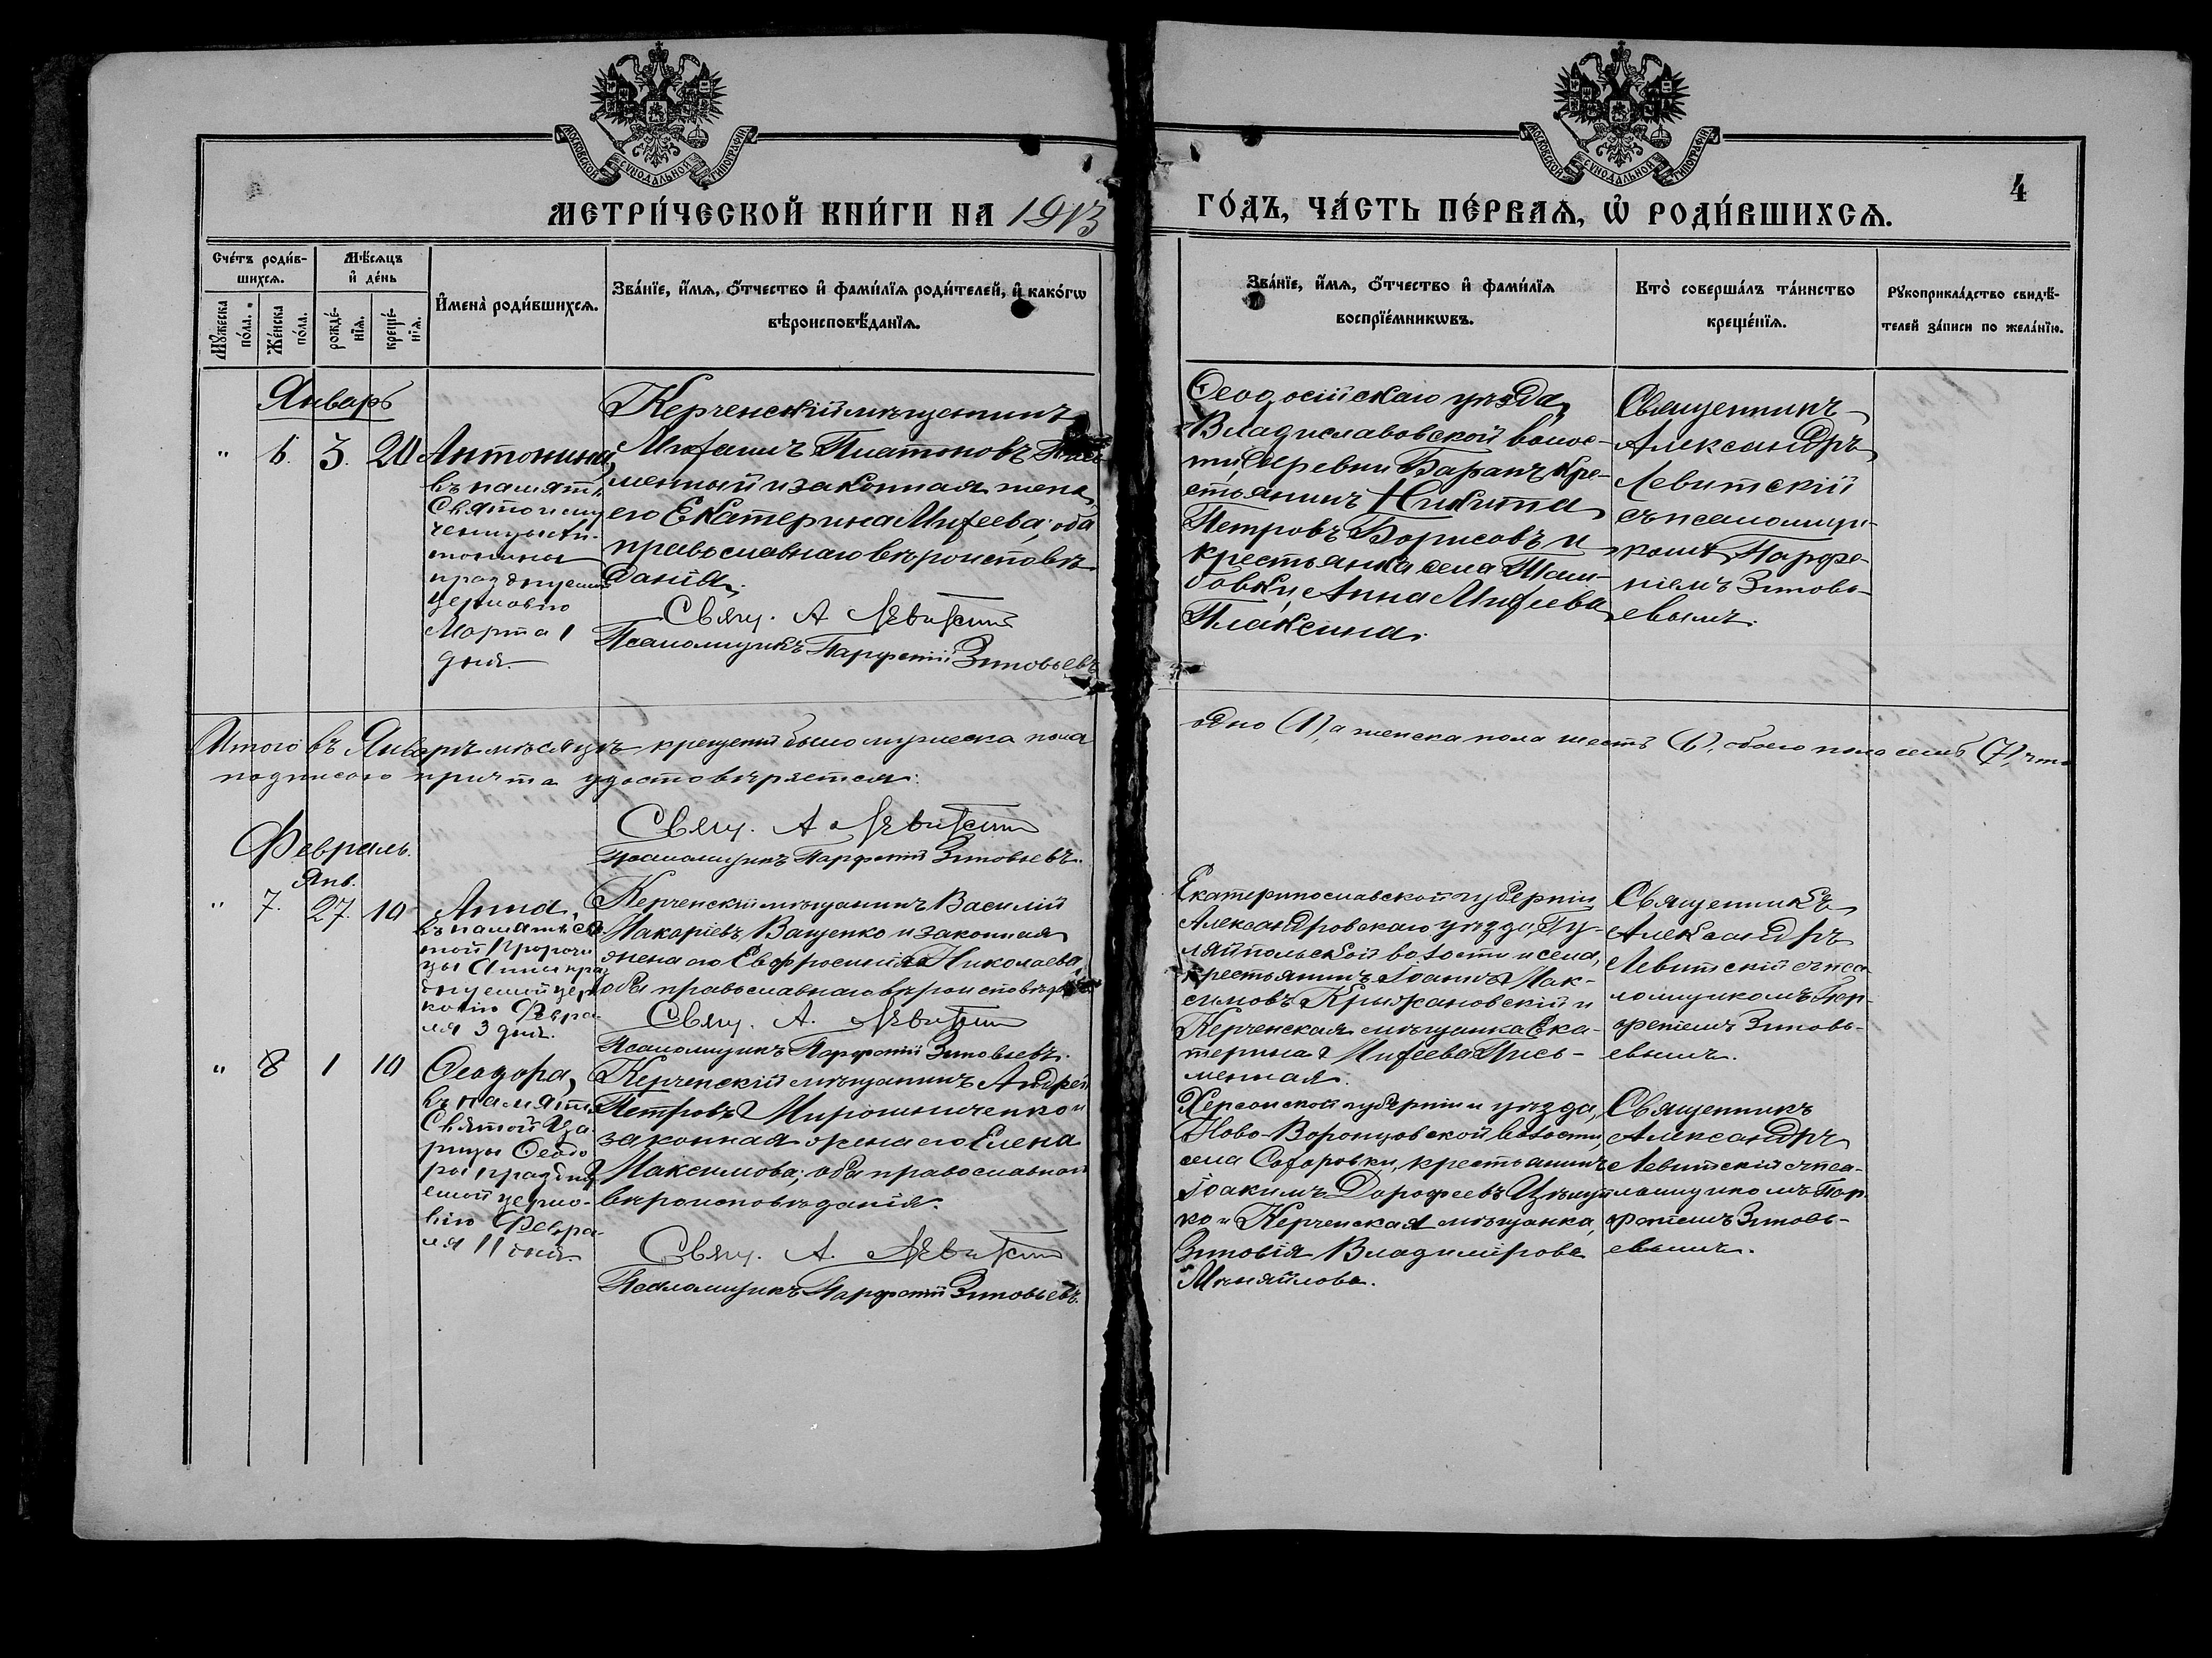 МОСКОВСКОЙ СѴНОДАЛЬНОЙ ТИПОГРАФІИ
МОСКОВСКОЙ СѴНОДАЛЬНОЙ ТИПОГРАФІИ
4
МЕТРИ́ЧЕСКОЙ КНИ́ГИ НА 1913
ГО́ДЪ, ЧА́СТЬ ПЕ́РВАѦ, Ѡ҆ РОДИ́ВШИХСѦ.
Сче́тъ роди́в-
шихсѧ.
Мꙋжеска по́ла.
Же́нска по́ла.
Мѣ́сѧцъ
и҆ де́нь
рожде́-
нїѧ.
креще́-
нїѧ.
И҆мена̀ роди́вшихсѧ.
Зва́нїе, и҆́мѧ, ѻ҆́тчество и҆ фами́лїѧ роди́телей, и҆ како́гѡ
вѣроисповѣ́данїѧ.
Зва́нїе, и҆́мѧ, ѻ҆́тчество и҆ фами́лїѧ
воспрїе́мникѡвъ.
Кто̀ соверша́лъ та́инство
креще́нїѧ.
Рꙋкоприкла́дство свидѣ́-
телей за́писи по жела́нїю.
Январь
" 6. 3. 20
Антонина,
въ память
Святой му
ченицы Ан-
тонины
празднуемой
церковію
Марта 1
дня.
Керченскій мѣщанинъ
Михаилъ Платоновъ Пись
менный и законная жена
его Екатерина Михеева, оба
православнаго вѣроисповѣ
данія.
Свящ. А Левитскій
Псаломщикъ Парфеній Зиновьевъ
Ѳеодосійскаго уѣзда,
Владиславовской волос-
ти, деревни Баранъ кре-
стьянинъ Никита
Петровъ Борисовъ и
крестьянка села Шам-
бовки, Анна Михеева
Плаксина.
Священникъ
Александръ
Левитскій
съ псаломщи-
комъ Парфе-
ніемъ Зиновь-
евымъ.
Итого въ Январѣ мѣсяцѣ крещеній было мужеска пола
одно (1), а женска пола шесть (6), обоего пола семь (7), что
подписью причта удостовѣряется.
Свящ. А Левитскій
Псаломщикъ Парфеній Зиновьевъ.
Февраль.
Янв.
" 7. 27. 10
Анна,
въ память свя
той Пророчи
цы Анны праз
днуемой цер
ковію Февра-
ля 3 дня.
Керченскій мѣщанинъ Василій
Макаріевъ Ващенко и законная
жена его Евфросинія Николаева,
оба православнаго вѣроисповѣданія
Свящ. А. Левитскій
Псаломщикъ Парфеній Зиновьевъ.
Екатеринославской губерніи
Александровскаго уѣзда, Гу-
ляйпольской волости и села,
крестьянинъ Іоаннъ Мак-
симовъ Крыжановскій и
Керченская мѣщанка Ека-
терина Михеева Пись-
менная.
Священникъ
Александръ
Левитскій съ пса
ломщикомъ Пар-
феніемъ Зиновь-
евымъ.
" 8 1 10
Ѳеодора,
въ память
Святой Ца-
рицы Ѳеодо
ры праздну
емой церко-
вію Февра-
ля 11 дня.
Керченскій мѣщанинъ Андрей
Петровъ Мирошниченко и
законная жена его Елена
Максимова, оба православнаго
вѣроисповѣданія.
Свящ. А. Левитскій
Псаломщикъ Парфеній Зиновьевъ.
Херсонской губерніи и уѣзда,
Ново-Воронцовской волости,
села крестьянинъ
Іоакимъ Дорофеевъ
ко и Керченская мѣщанка,
Зиновія Владимірова
Михайлова.
Священникъ
Александръ
Левитскій съ пса-
ломщикомъ Пар-
феніемъ Зиновь-
евымъ.